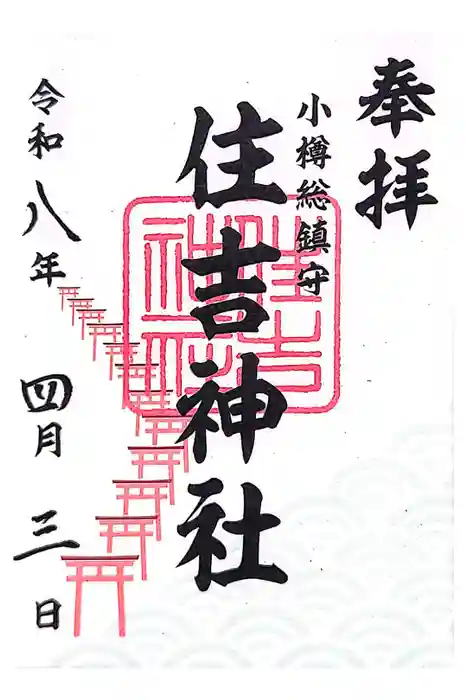 奉拝
小樽総鎮守
住吉神社
住吉神社
令和八年四月三日